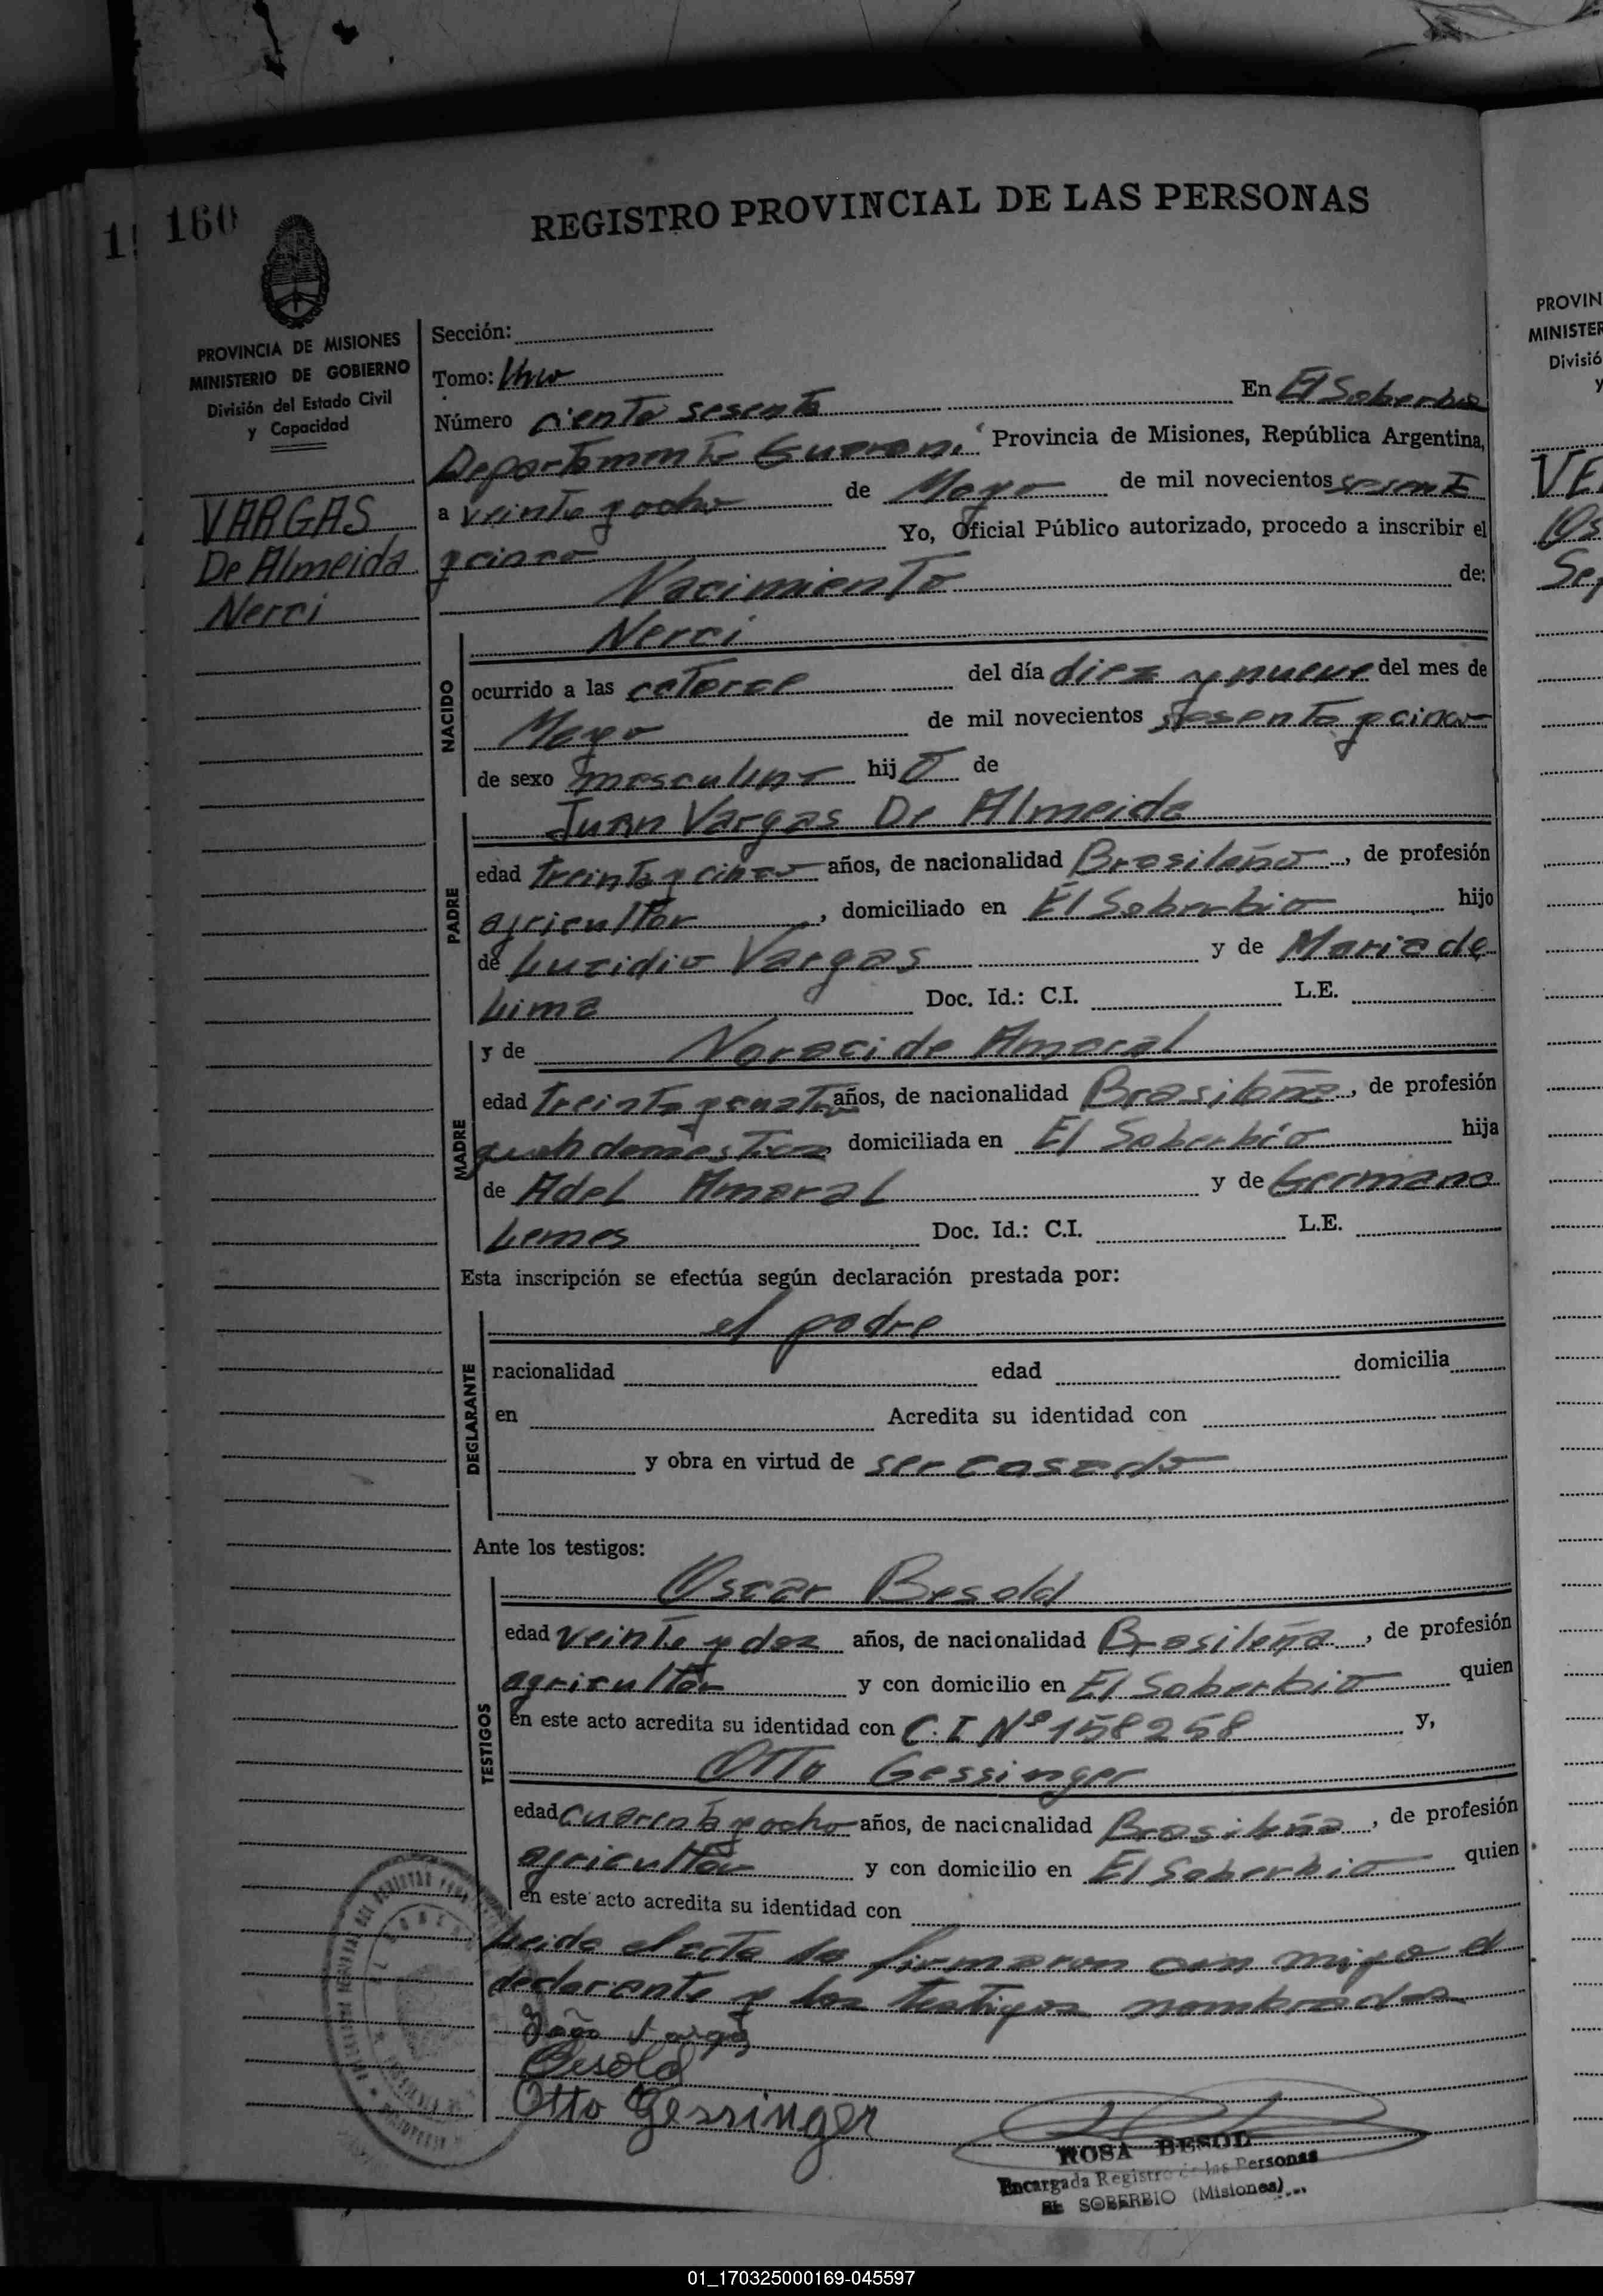 160
REGISTRO PROVINCIAL DE LAS PERSONAS
PROVINCIA DE MISIONES
MINISTERIO DE GOBIERNO
División del Estado Civil
y Capacidad
VARGAS
De Almeida
Nerci
Sección:
Tomo: Uno
Número ciento sesenta En El Soberbio
Departamento Guarani Provincia de Misiones, República Argentina,
a veinte y ocho de Mayo de mil novecientos sesenta
y cinco Yo, Oficial Público autorizado, procedo a inscribir el
Nacimiento de:
NACIDO
Nerci
ocurrido a las catorce del día diez y nueve del mes de
Mayo de mil novecientos sesenta y cinco
de sexo masculino hijo de
PADRE
Juan Vargas De Almeida
edad treinta y cinco años, de nacionalidad Brasileño, de profesión
agricultor, domiciliado en El Soberbio hijo
de Lucidio Vargas y de Maria de
Lima Doc. Id.: C.I. L.E.
MADRE
y de Noraci de Amaral
edad treinta y cuatro años, de nacionalidad Brasileña, de profesión
domestica domiciliada en El Soberbio hija
de Adel Amaral y de Germana
Lemes Doc. Id.: C.I. L.E.
Esta inscripción se efectúa según declaración prestada por:
DECLARANTE
el padre
nacionalidad edad domicilia
en Acredita su identidad con
y obra en virtud de ser casado
Ante los testigos:
TESTIGOS
Oscar Besold
edad veinte y dos años, de nacionalidad Brasileña, de profesión
agricultor y con domicilio en El Soberbio quien
en este acto acredita su identidad con C.I Nº 158258 y,
Otto Gessinger
edad cuarenta y ocho años, de nacionalidad Brasileña, de profesión
agricultor y con domicilio en El Soberbio quien
en este acto acredita su identidad con
Leida el acta la firmaron con migo el
declarante y los testigos nombrados
João Vargas
Besold
Otto Gessinger
ROSA BESOLD
Encargada Registro de las Personas
EL SOBERBIO (Misiones)
PROVIN
MINISTER
Divisió
y
VE
Se
01_170325000169-045597